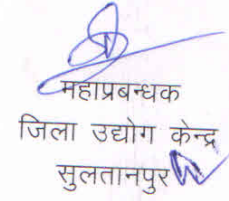 महाप्रबन्धक
जिला उद्योग केन्द्र
सुलतानपुर